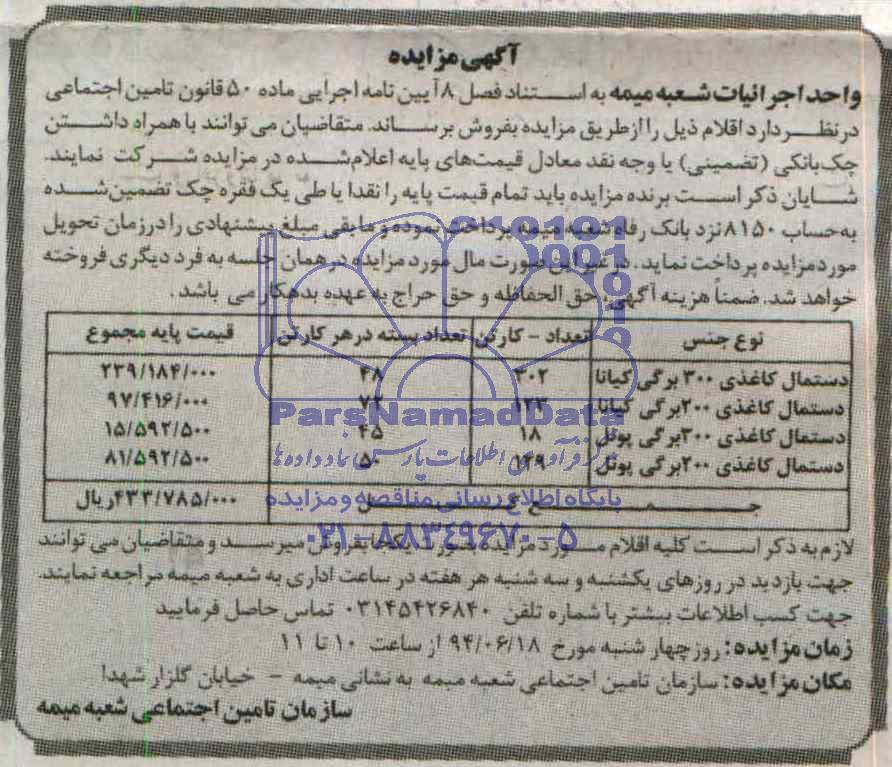 آگهی مزایده
واحد اجرائیات شعبه میمه به استناد فصل ۸ آیین نامه اجرایی ماده ۵۰ قانون تامین اجتماعی
درنظر دارد اقلام ذیل را ازطریق مزایده بفروش برساند. متقاضیان می توانند با همراه داشتن
چک بانکی (تضمینی) یا وجه نقد معادل قیمت‌های پایه اعلام‌شده در مزایده شرکت نمایند.
شایان ذکر است برنده مزایده باید تمام قیمت پایه را نقدا یا طی یک فقره چک تضمین‌شده
به‌حساب ۸۱۵۰ نزد بانک رفاه شعبه میمه پرداخت نموده و مابقی مبلغ پیشنهادی را درزمان تحویل
موردمزایده پرداخت نماید. در غیر این صورت مال مورد مزایده در همان جلسه به فرد دیگری فروخته
خواهد شد. ضمناً هزینه آگهی، حق الحفاظه و حق حراج به عهده بدهکار می باشد.
نوع جنس تعداد - کارتن تعداد بسته در هر کارتن قیمت پایه مجموع
دستمال کاغذی ۳۰۰ برگی کیانا ۳۰۲ ۴۸ ۲۳۹/۱۸۴/۰۰۰
دستمال کاغذی ۲۰۰ برگی کیانا ۱۲۳ ۷۲ ۹۷/۴۱۶/۰۰۰
دستمال کاغذی ۳۰۰ برگی پونل ۱۸ ۴۵ ۱۵/۵۹۲/۵۰۰
دستمال کاغذی ۲۰۰ برگی پونل ۱۲۹ ۵۰ ۸۱/۵۹۲/۵۰۰
جمع کل ۴۳۳/۷۸۵/۰۰۰ ریال
لازم به ذکر است کلیه اقلام مورد مزایده بصورت یکجا بفروش میرسد و متقاضیان می توانند
جهت بازدید در روزهای یکشنبه و سه شنبه هر هفته در ساعت اداری به شعبه میمه مراجعه نمایند.
جهت کسب اطلاعات بیشتر با شماره تلفن ۰۳۱۴۵۴۲۶۸۴۰ تماس حاصل فرمایید
زمان مزایده: روز چهار شنبه مورخ ۹۴/۰۶/۱۸ از ساعت ۱۰ تا ۱۱
مکان مزایده: سازمان تامین اجتماعی شعبه میمه به نشانی میمه - خیابان گلزار شهدا
سازمان تامین اجتماعی شعبه میمه
ParsNamadData
مرکز فرآوری اطلاعات پارس نماد داده ها
پایگاه اطلاع رسانی مناقصه و مزایده
۰۲۱-۸۸۳۴۹۶۷۰-۵